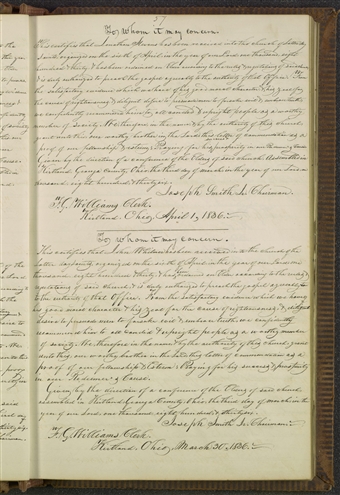 57
To whom it may concern.
This certifies that has been received into this church of Latter day
Saints organized on the sixth of April in the year of our Lord one thousand eight
hundred & thirty & has been ordained an according to the rules & regulations of said church
& is duly authorized to preach the gospel agreeably to the authority of that office. From
the satisfactory evidence which we have of his good moral character, & his zeal for
the cause of righteousness, & diligent desire to persuade men to forsake evil & embrace truth
we confidently recommend him to all candid & upright people as a worthy
member of society. We therefore in the name & by the authority of this church
grant unto this our worthy brother in the Lord this letter of commendation as a
proof of our fellowship & esteem: Praying for his prosperity in our Redeemer's cause.
Given by the direction of a conference of the Elders of said church assembled in
Kirtland Geauga County Ohio the third day of March in the year of our Lord one
thousand eight hundred & thirty six.
Joseph Smith Jr. Chairman.
F. G. Williams Clerk.
Kirtland Ohio, April 1, 1836.
To whom it may concern.
This certifies that John received into the church of the
Latter day Saints organized on the sixth of April in the year of our Lord one
thousand eight hundred & thirty & has been ordained an according to the rules &
regulations of said church & is duly authorized to preach the gospel agreeably to
the authority of that office. From the satisfactory evidence which we have of
his good moral character & his zeal for the cause of righteousness, & diligent
desire to persuade men to forsake evil & embrace truth we confidently
recommend him to all candid & upright people as a worthy member
of society. We therefore in the name & by the authority of this church grant
unto this our worthy brother in the Lord this letter of commendation as a
proof of our fellowship & esteem: Praying for his success & prosperity
in our Redeemer's cause.
Given by the direction of a conference of the Elders of said church
assembled in Kirtland Geauga County Ohio the third day of March in the
year of our Lord one thousand eight hundred & thirty six.
Joseph Smith Jr. Chairman.
F. G. Williams Clerk.
Kirtland, Ohio, March 30, 1836.